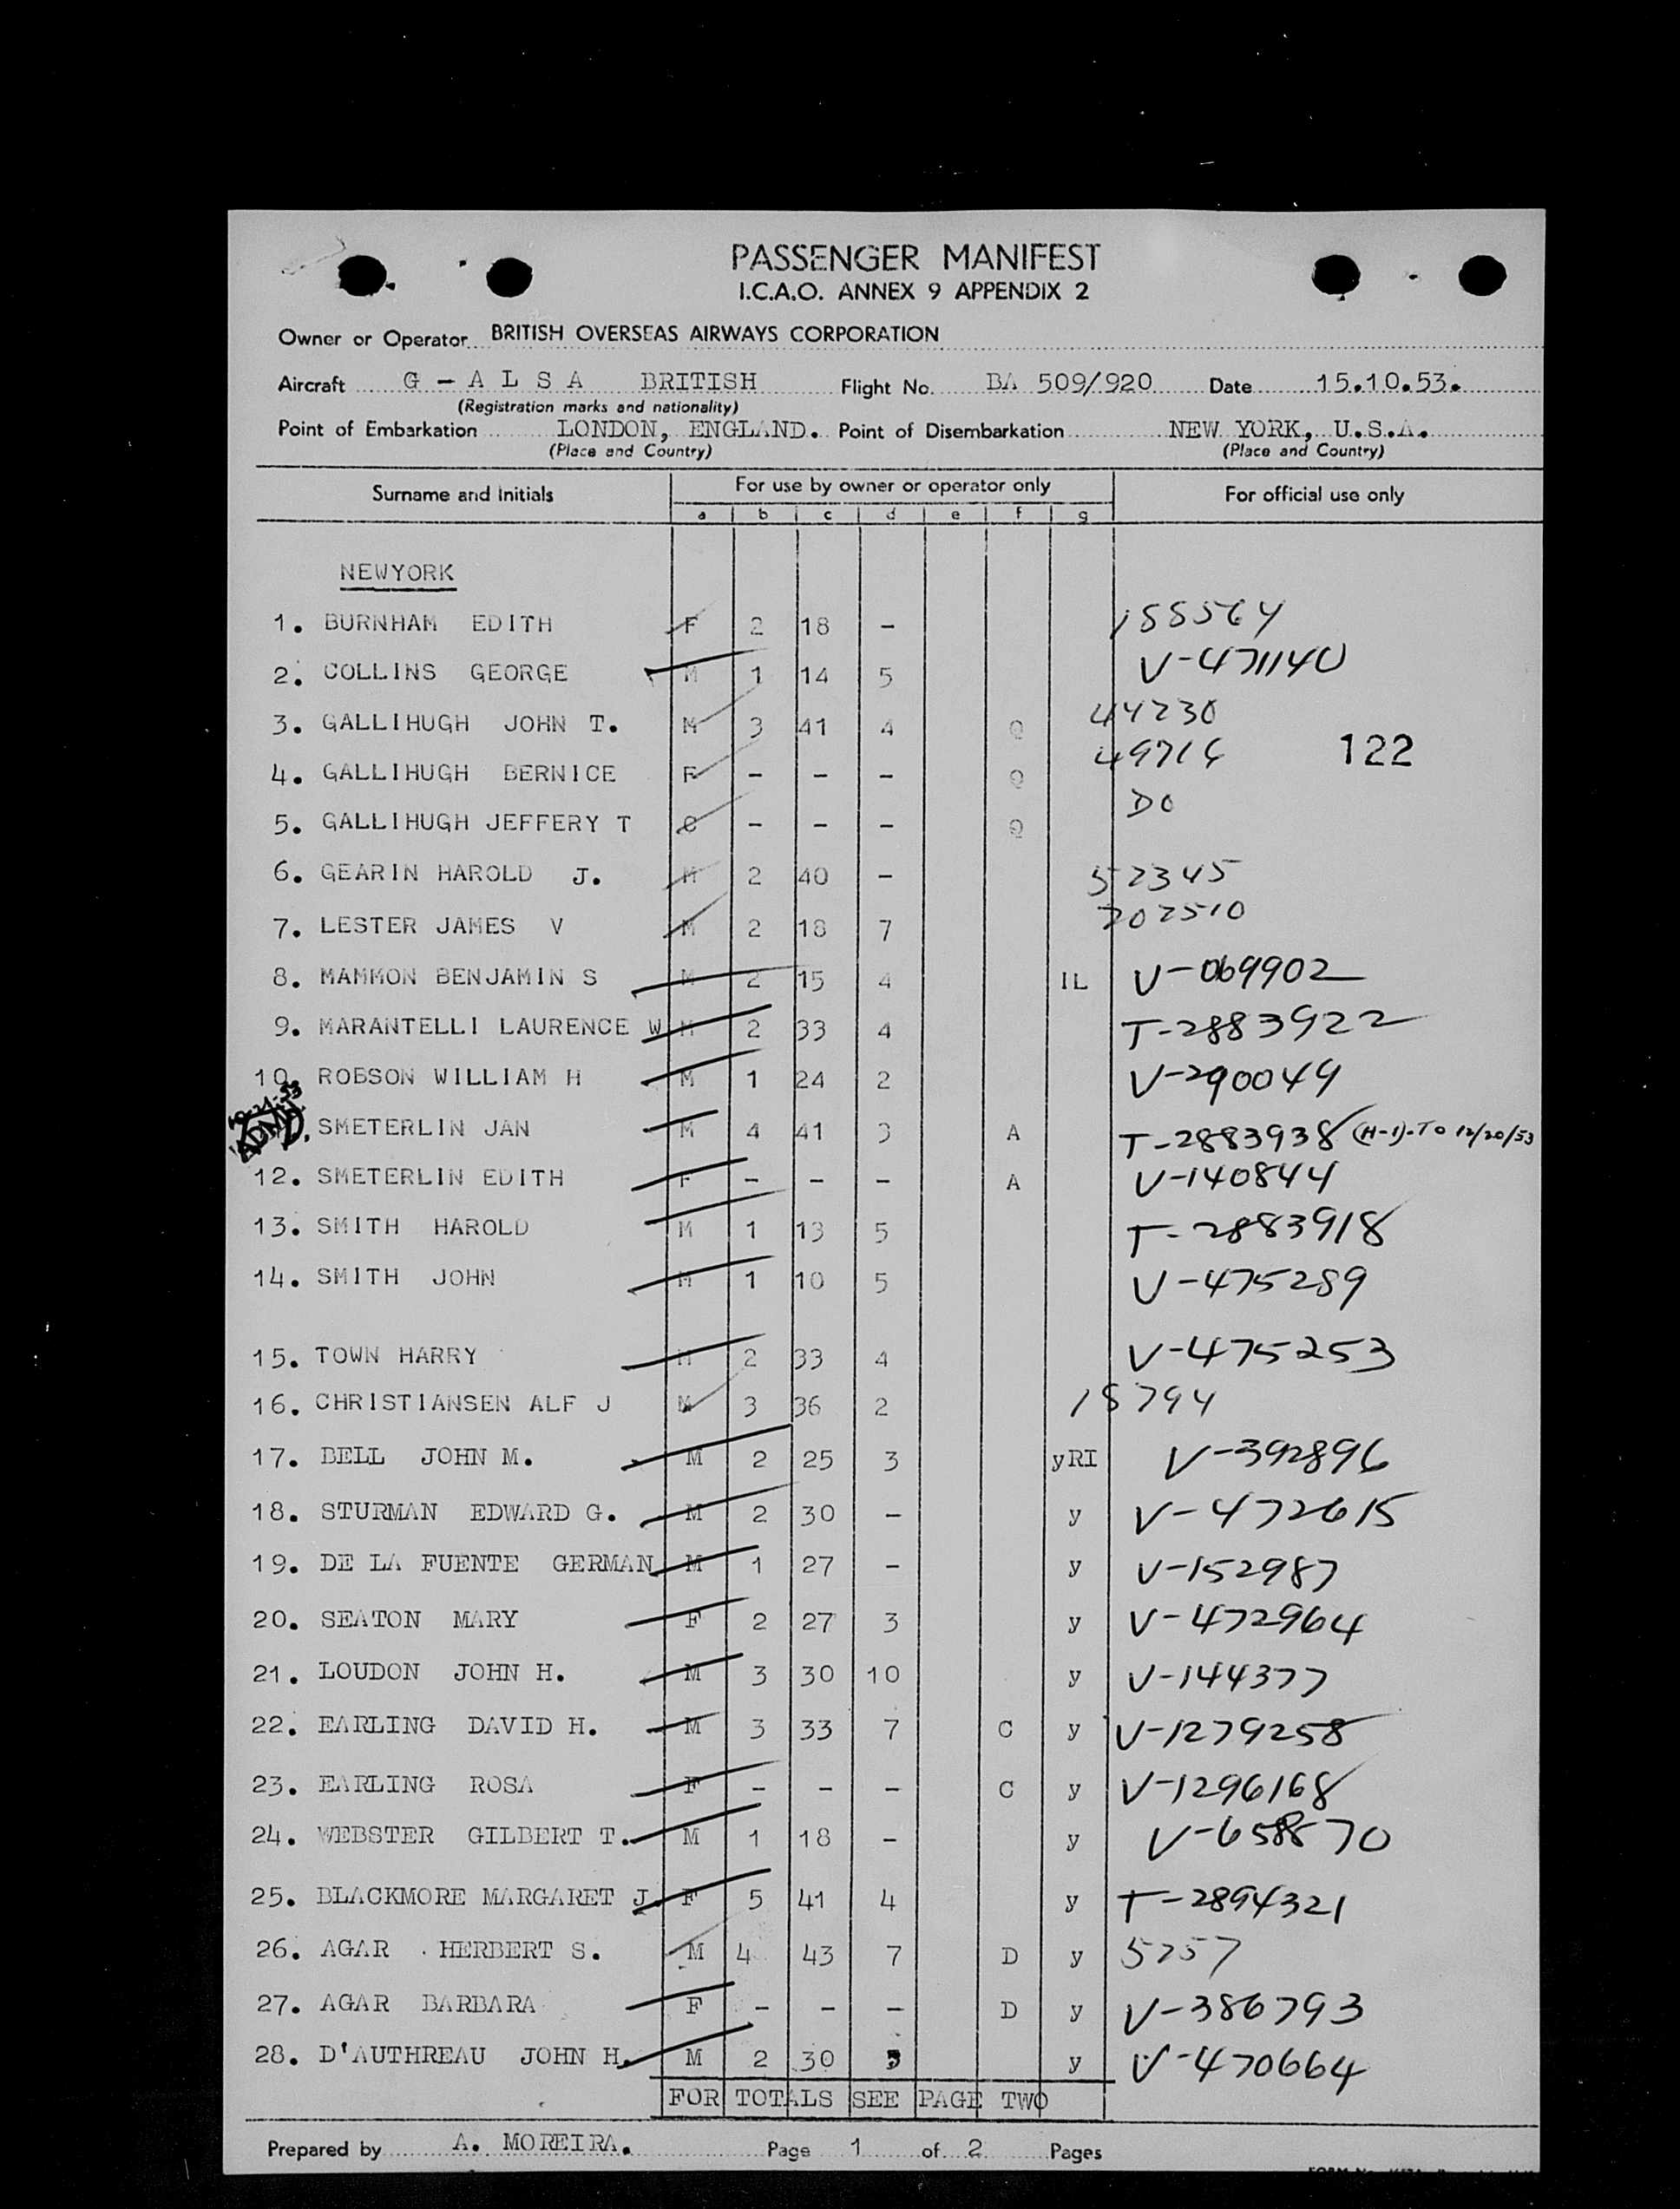 PASSENGER MANIFEST
I.C.A.O. ANNEX 9 APPENDIX 2
Owner or Operator BRITISH OVERSEAS AIRWAYS CORPORATION
Aircraft G - A L S A BRITISH Flight No. BA 509/920 Date 15.10.53.
(Registration marks and nationality)
Point of Embarkation LONDON, ENGLAND. Point of Disembarkation NEW YORK, U.S.A.
(Place and Country) (Place and Country)
Surname and Initials For use by owner or operator only For official use only
a b c d e f g
NEWYORK
1. BURNHAM EDITH F 2 18 - 188564
2. COLLINS GEORGE M 1 14 5 V-471140
3. GALLIHUGH JOHN T. M 3 41 4 Q 44230
122
4. GALLIHUGH BERNICE F - - - Q 49716
5. GALLIHUGH JEFFERY T C - - - Q DO
6. GEARIN HAROLD J. M 2 40 - 52345
7. LESTER JAMES V M 2 18 7 202510
8. MAMMON BENJAMIN S M 2 15 4 IL V-069902
9. MARANTELLI LAURENCE W M 2 33 4 T-2883922
10. ROBSON WILLIAM H M 1 24 2 V-290049
SMETERLIN JAN M 4 41 3 A T-2883938 (H-1)-TO 12/20/53
12. SMETERLIN EDITH F - - - A V-140844
13. SMITH HAROLD M 1 13 5 T-2883918
14. SMITH JOHN M 1 10 5 V-475289
15. TOWN HARRY M 2 33 4 V-475253
16. CHRISTIANSEN ALF J M 3 36 2 18794
17. BELL JOHN M. M 2 25 3 yRI V-392896
18. STURMAN EDWARD G. M 2 30 - y V-472615
19. DE LA FUENTE GERMAN M 1 27 - y V-152987
20. SEATON MARY F 2 27 3 y V-472964
21. LOUDON JOHN H. M 3 30 10 y V-144377
22. EARLING DAVID H. M 3 33 7 C y V-1279258
23. EARLING ROSA F - - - C y V-1296168
24. WEBSTER GILBERT T. M 1 18 - y V-658870
25. BLACKMORE MARGARET J. F 5 41 4 y T-2894321
26. AGAR HERBERT S. M 4 43 7 D y 5257
27. AGAR BARBARA F - - - D y V-386793
28. D'AUTHREAU JOHN H. M 2 30 y V-470664
FOR TOTALS SEE PAGE TWO
Prepared by A. MOREIRA. Page 1 of 2 Pages